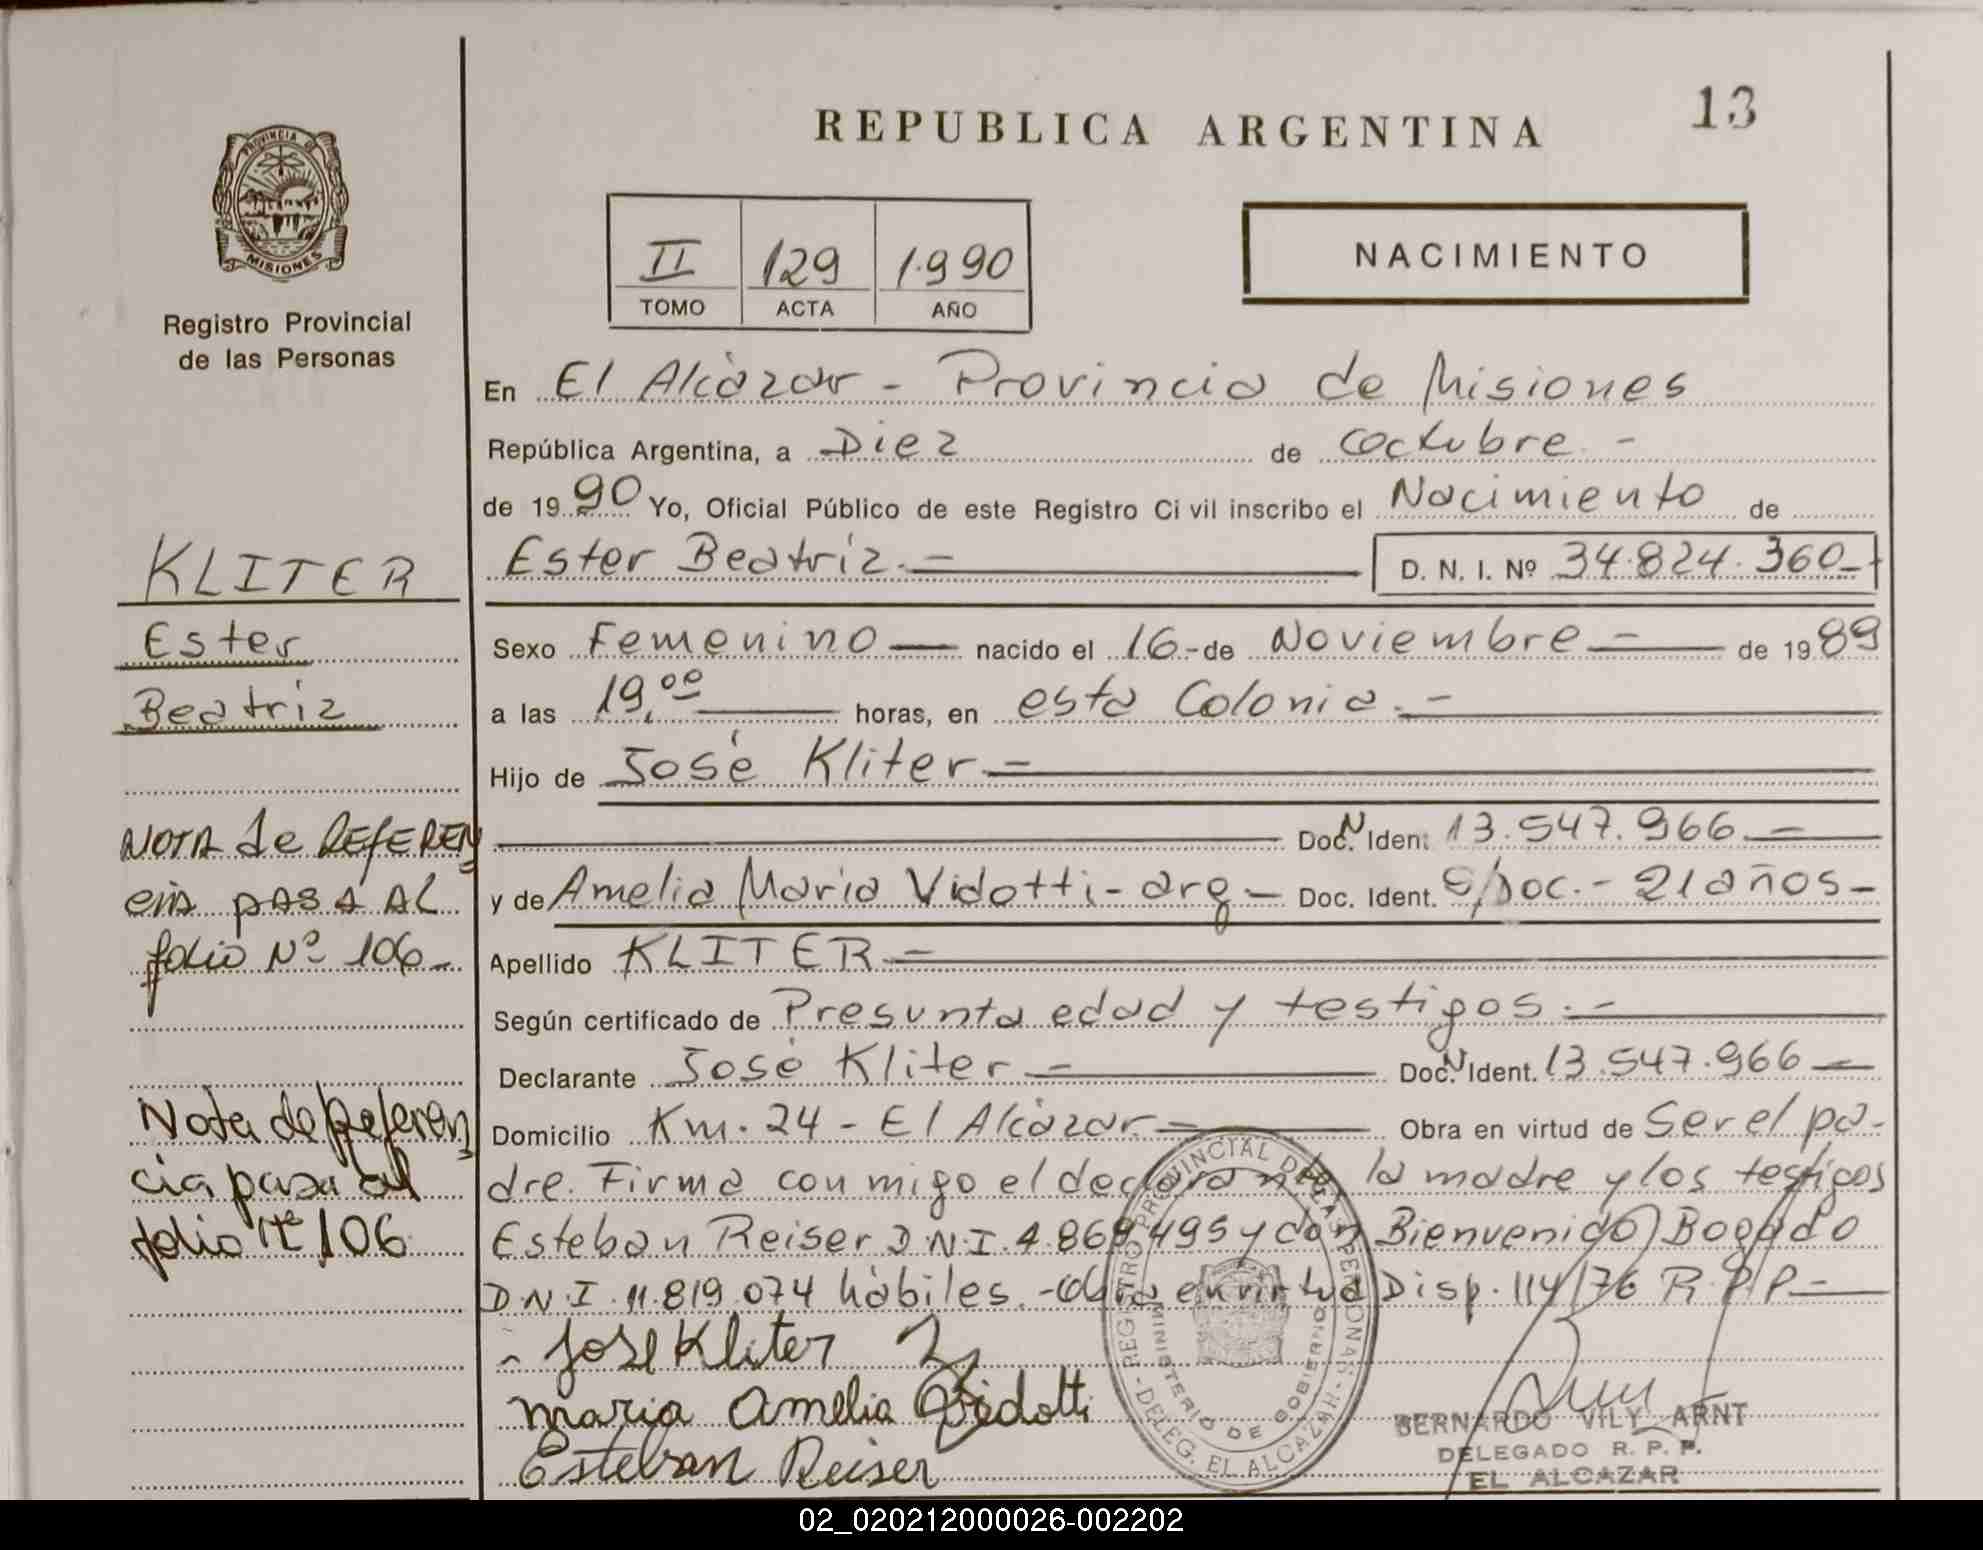 REPUBLICA ARGENTINA
13
PROVINCIA DE
MISIONES
Registro Provincial
de las Personas
II 129 1.990
TOMO ACTA AÑO
NACIMIENTO
En El Alcàzar - Provincia de Misiones
República Argentina, a Diez de octubre.-
de 1990 Yo, Oficial Público de este Registro Ci vil inscribo el Nacimiento de
Ester Beatriz.- D. N. I. Nº 34.824.360-
KLITER
Ester
Beatriz
Sexo Femenino nacido el 16-de Noviembre - de 1989
a las 19,00 horas, en esta Colonia.-
Hijo de José Kliter.-
Doc. N Iden: 13.547.966.-
y de Amelia Maria Vidotti-arg- Doc. Ident. S/Doc.- 21años-
Apellido KLITER.-
Según certificado de Presunta edad y testigos.-
Declarante José Kliter - Doc. N Ident. 13.547.966-
Domicilio Km. 24 - El Alcàzar.- Obra en virtud de Ser el pa-
dre. Firma con migo el declarante la madre y los testigos
Esteban Reiser D.N.I. 4.869.495 y don Bienvenido Bogado
D.N.I. 11.819.074 hàbiles.-Obra en virtud Disp. 114/76 R.P.P-
NOTA de REFEREN
cia PASA AL
folio Nº 106-
Nota de Referen
cia pasa al
folio Nº 106
- Jose Kliter
maria Amelia Vidotti
Esteban Reiser
REGISTRO PROVINCIAL DE LAS PERSONAS
MINISTERIO DE GOBIERNO
-DELEG. EL ALCAZAR-
BERNARDO VILY ARNT
DELEGADO R. P. P.
EL ALCAZAR
02_020212000026-002202